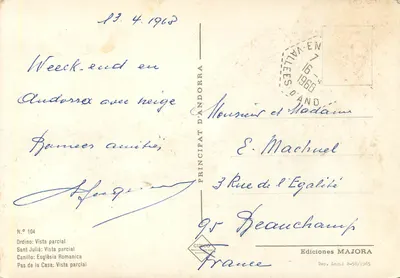 13.4.1968
Week-end en
Andorra avec neige
Bonnes amitiés
Nº 104
Ordino: Vista parcial
Sant Julià: Vista parcial
Canillo: Església Romanica
Pas de la Casa: Vista parcial
PRINCIPAT D'ANDORRA
7
16-4
1968
Monsieur et Madame
E. Machuel
3 Rue de l'Egalité
95 Beauchamp
France
Ediciones MAJORA